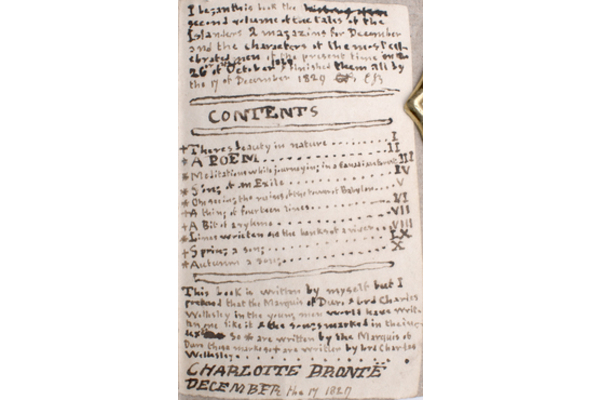 I began this book the
second volume of the tales of the
Islanders 2 magazins for December
and the characters of the most cel-
ebrated men of the present time on the
26th of October 1829 & finished them all by
the 17 of December 1829 CB
CONTENTS
+ Theres beauty in nature ......... I
* A POEM ............ II
* Meditations while journeying in a Canadian forest III
* Song of an Exile ............ IV
* On seeing the ruins of the tower of Babylon .... V
+ A thing of fourteen lines ......... VI
+ A Bit of a rhyme ............ VII
* Lines written on the bank of a river ... VIII
+ Spring a song ............ IX
* Autumn a song ............ X
This book is written by myself but I
pretend that the Marquis of Duro & Lord Charles
Wellesley in the young mens world have writt-
en one like it & the songs marked in the in-
dex so * are written by the Marquis of
Duro those marked so + are written by Lord Charles
Wellesley
CHARLOTTE BRONTË
DECEMBER the 17 1829